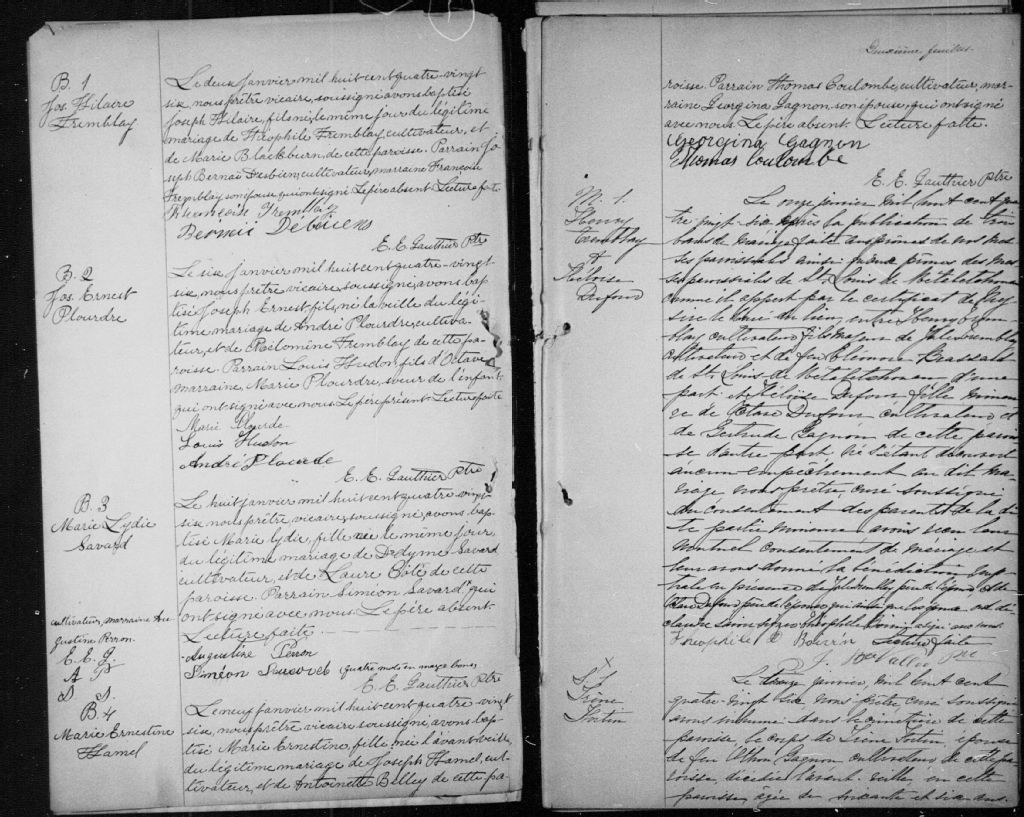 B. 1
Jos. Hilaire
Tremblay
Le deux janvier mil huit cent quatre-vingt
six, nous prêtre vicaire, soussigné avons baptisé
Joseph Hilaire, fils né le même jour du légitime
mariage de Théophile Tremblay, cultivateur, et
de Marie Blackburn, de cette paroisse. Parrain Jo-
seph Bernai Desbiens, cultivateur, marraine Françoise
Tremblay son épouse qui ont signé Le père absent Lecture faite
Françoise Tremblay
Bernai Débiens
E. E. Gauthier Ptre
B. 2
Jos. Ernest
Plourdre
Le six janvier mil huit cent quatre-vingt
six, nous prêtre, vicaire, soussigné, avons bap
tisé Joseph Ernest, fils, né la veille du légi-
time mariage de André Plourdre, cultiva-
teur, et de Philomène Tremblay de cette pa-
roisse. Parrain Louis Hudon fils d'Octave
marraine, Marie Plourdre, soeur de l'enfant
qui ont signé avec nous Le père présent Lecture faite
Marie Plourde
Louis Hudon
André Plourde
E. E. Gauthier Ptre
B. 3
Marie Lydie
Savard
Le huit janvier mil huit cent quatre vingt
six nous prêtre, vicaire, soussigné, avons bap-
tisé Marie Lydie, fille née le même jour,
du légitime mariage de Dydyme Savard
cultivateur, et de Laure Côté de cette
paroisse. Parrain Siméon Savard qui
ont signé avec nous. Le père absent
Lecture faite.
cultivateur, marraine Au
gustine Perron.
E. E. G
A P
S S.
Augustine Perron
Siméon quatre mots en marge bons
E. E. Gauthier Ptre
B. 4
Marie Ernestine
Hamel
Le neuf janvier mil huit cent quatre-vingt
six, nous prêtre, vicaire, soussigné, avons bap-
tisé Marie Ernestine, fille, née l'avant veille,
du légitime mariage de Joseph Hamel, cul-
tivateur, et de Antoinette Belley de cette pa-
Deuxième feuillet
roisse. Parrain Thomas Coulombe, cultivateur, mar-
raine Georgina Gagnon, son épouse, qui ont signé
avec nous. Le père absent. Lecture faite.
Georgina Gagnon
Thomas Coulombe
E. E. Gauthier Ptre
M. 1.
Henry
Tremblay
+
Héloïse
Dufour
Le onze janvier mil huit cent qua
tre vingt-six après la publication de trois
bans de mariage faite aux prônes de nos mes
ses paroissiales ainsi qu'aux prônes des mes
ses paroissiales de St Louis de Metabetchouan
comme il appert par le certificat de
sire le curé du lieu, entre Henry Trem
blay cultivateur fils majeur de Jules Tremblay
cultivateur et de feu Eléonore Brassard
de St Louis de Metabetchouan d'une
part et Héloïse Dufour fille mineu
re de Octave Dufour cultivateur et
de Gertrude Gagnon de cette parois
se d'autre part, ne s'étant découvert
aucun empêchement au dit ma
riage, nous prêtre, curé soussigné
du consentement des parents de la di
te partie mineure avons reçu leur
mutuel consentement de mariage et
leur avons donné la bénédiction nup
tiale en présence de
Octave Dufour père de l'épouse qui ainsi que les époux ont dé
claré ne savoir signer Théophile Boivin a signé avec nous.
Théophile Boivin Lecture faite
J. Vallée Ptre
S. 1
Irène
Fortin
Le janvier, mil huit cent
quatre-vingt six nous prêtre curé soussigné
avons inhumé dans le cimetière de cette
paroisse, le corps de Irène Fortin, épouse
de feu Gagnon cultivateur de cette pa
roisse, décédée l'avant veille en cette
paroisse, âgée de soixante et six ans.